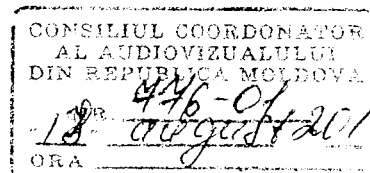 CONSILIUL COORDONATOR
AL AUDIOVIZUALULUI
DIN REPUBLICA MOLDOVA
NR. 776-01
18 august 201
ORA